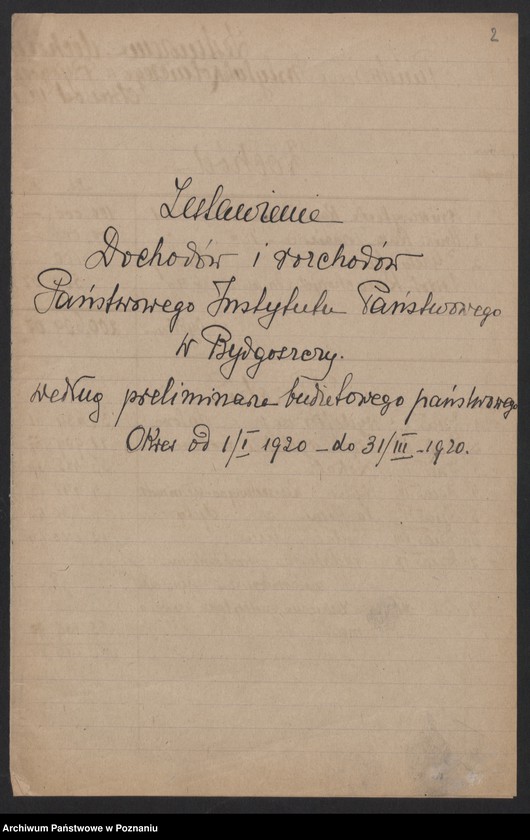 2
Zestawienie
Dochodów i rozchodów
Państwowego Instytutu Państwowego
w Bydgoszczy.
według preliminarza budżetowego państwowego
Okres od 1/I 1920 - do 31/III - 1920.
Archiwum Państwowe w Poznaniu